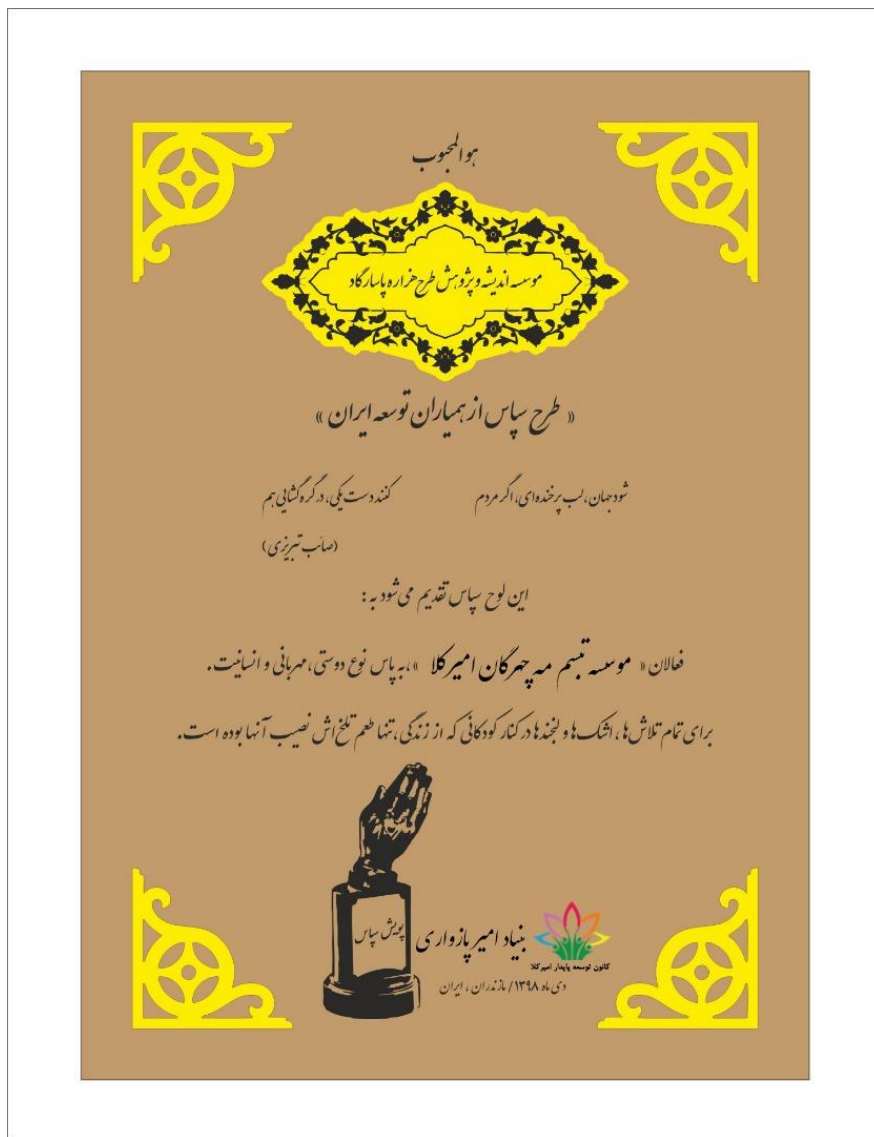 هو المحبوب
موسسه اندیشه و پژوهش طرح هزاره پاسارگاد
« طرح سپاس از همیاران توسعه ایران »
شود جهان، لب پرخنده‌ای، اگر مردم کنند دست یکی، در گره گشایی هم
(صائب تبریزی)
این لوح سپاس تقدیم می‌شود به:
فعالان « موسسه تبسم مه چهرگان امیرکلا »، به پاس نوع دوستی، مهربانی و انسانیت.
برای تمام تلاش‌ها، اشک‌ها و لبخندها در کنار کودکانی که از زندگی، تنها طعم تلخ‌اش نصیب آنها بوده است.
بنیاد امیر پازواری
پویش سپاس
کانون توسعه پایدار امیرکلا
دی ماه ۱۳۹۸/ مازندران ، ایران